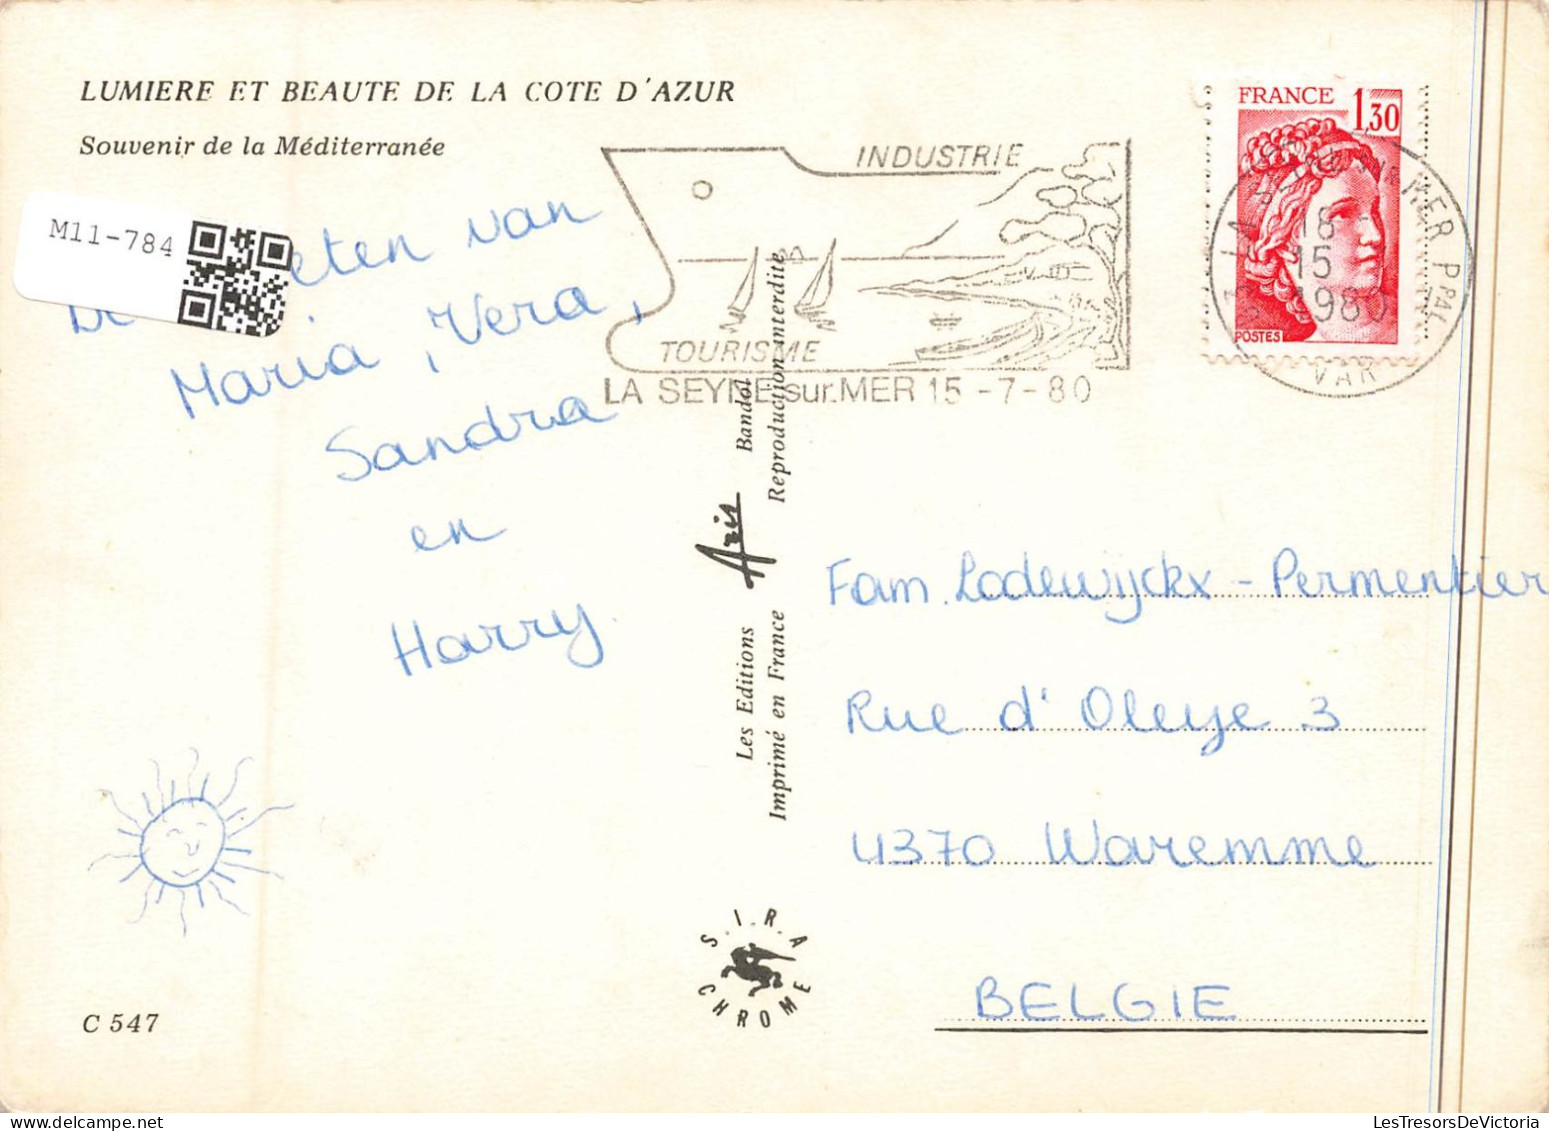 LUMIERE ET BEAUTE DE LA COTE D'AZUR
Souvenir de la Méditerranée
M11-784
van
Maria, Vera,
Sandra
en
Harry
C 547
INDUSTRIE
TOURISME
LA SEYNE sur.MER 15-7-80
FRANCE 1,30
POSTES
MER PPAL
18
15
1980
VAR
Les Editions Aris Bandol
Imprimé en France Reproduction interdite
S.I.R.A
CHROME
Fam. Lodewijckx - Permentier
Rue d'Oleye 3
4370 Waremme
BELGIE
LesTresorsDeVictoria